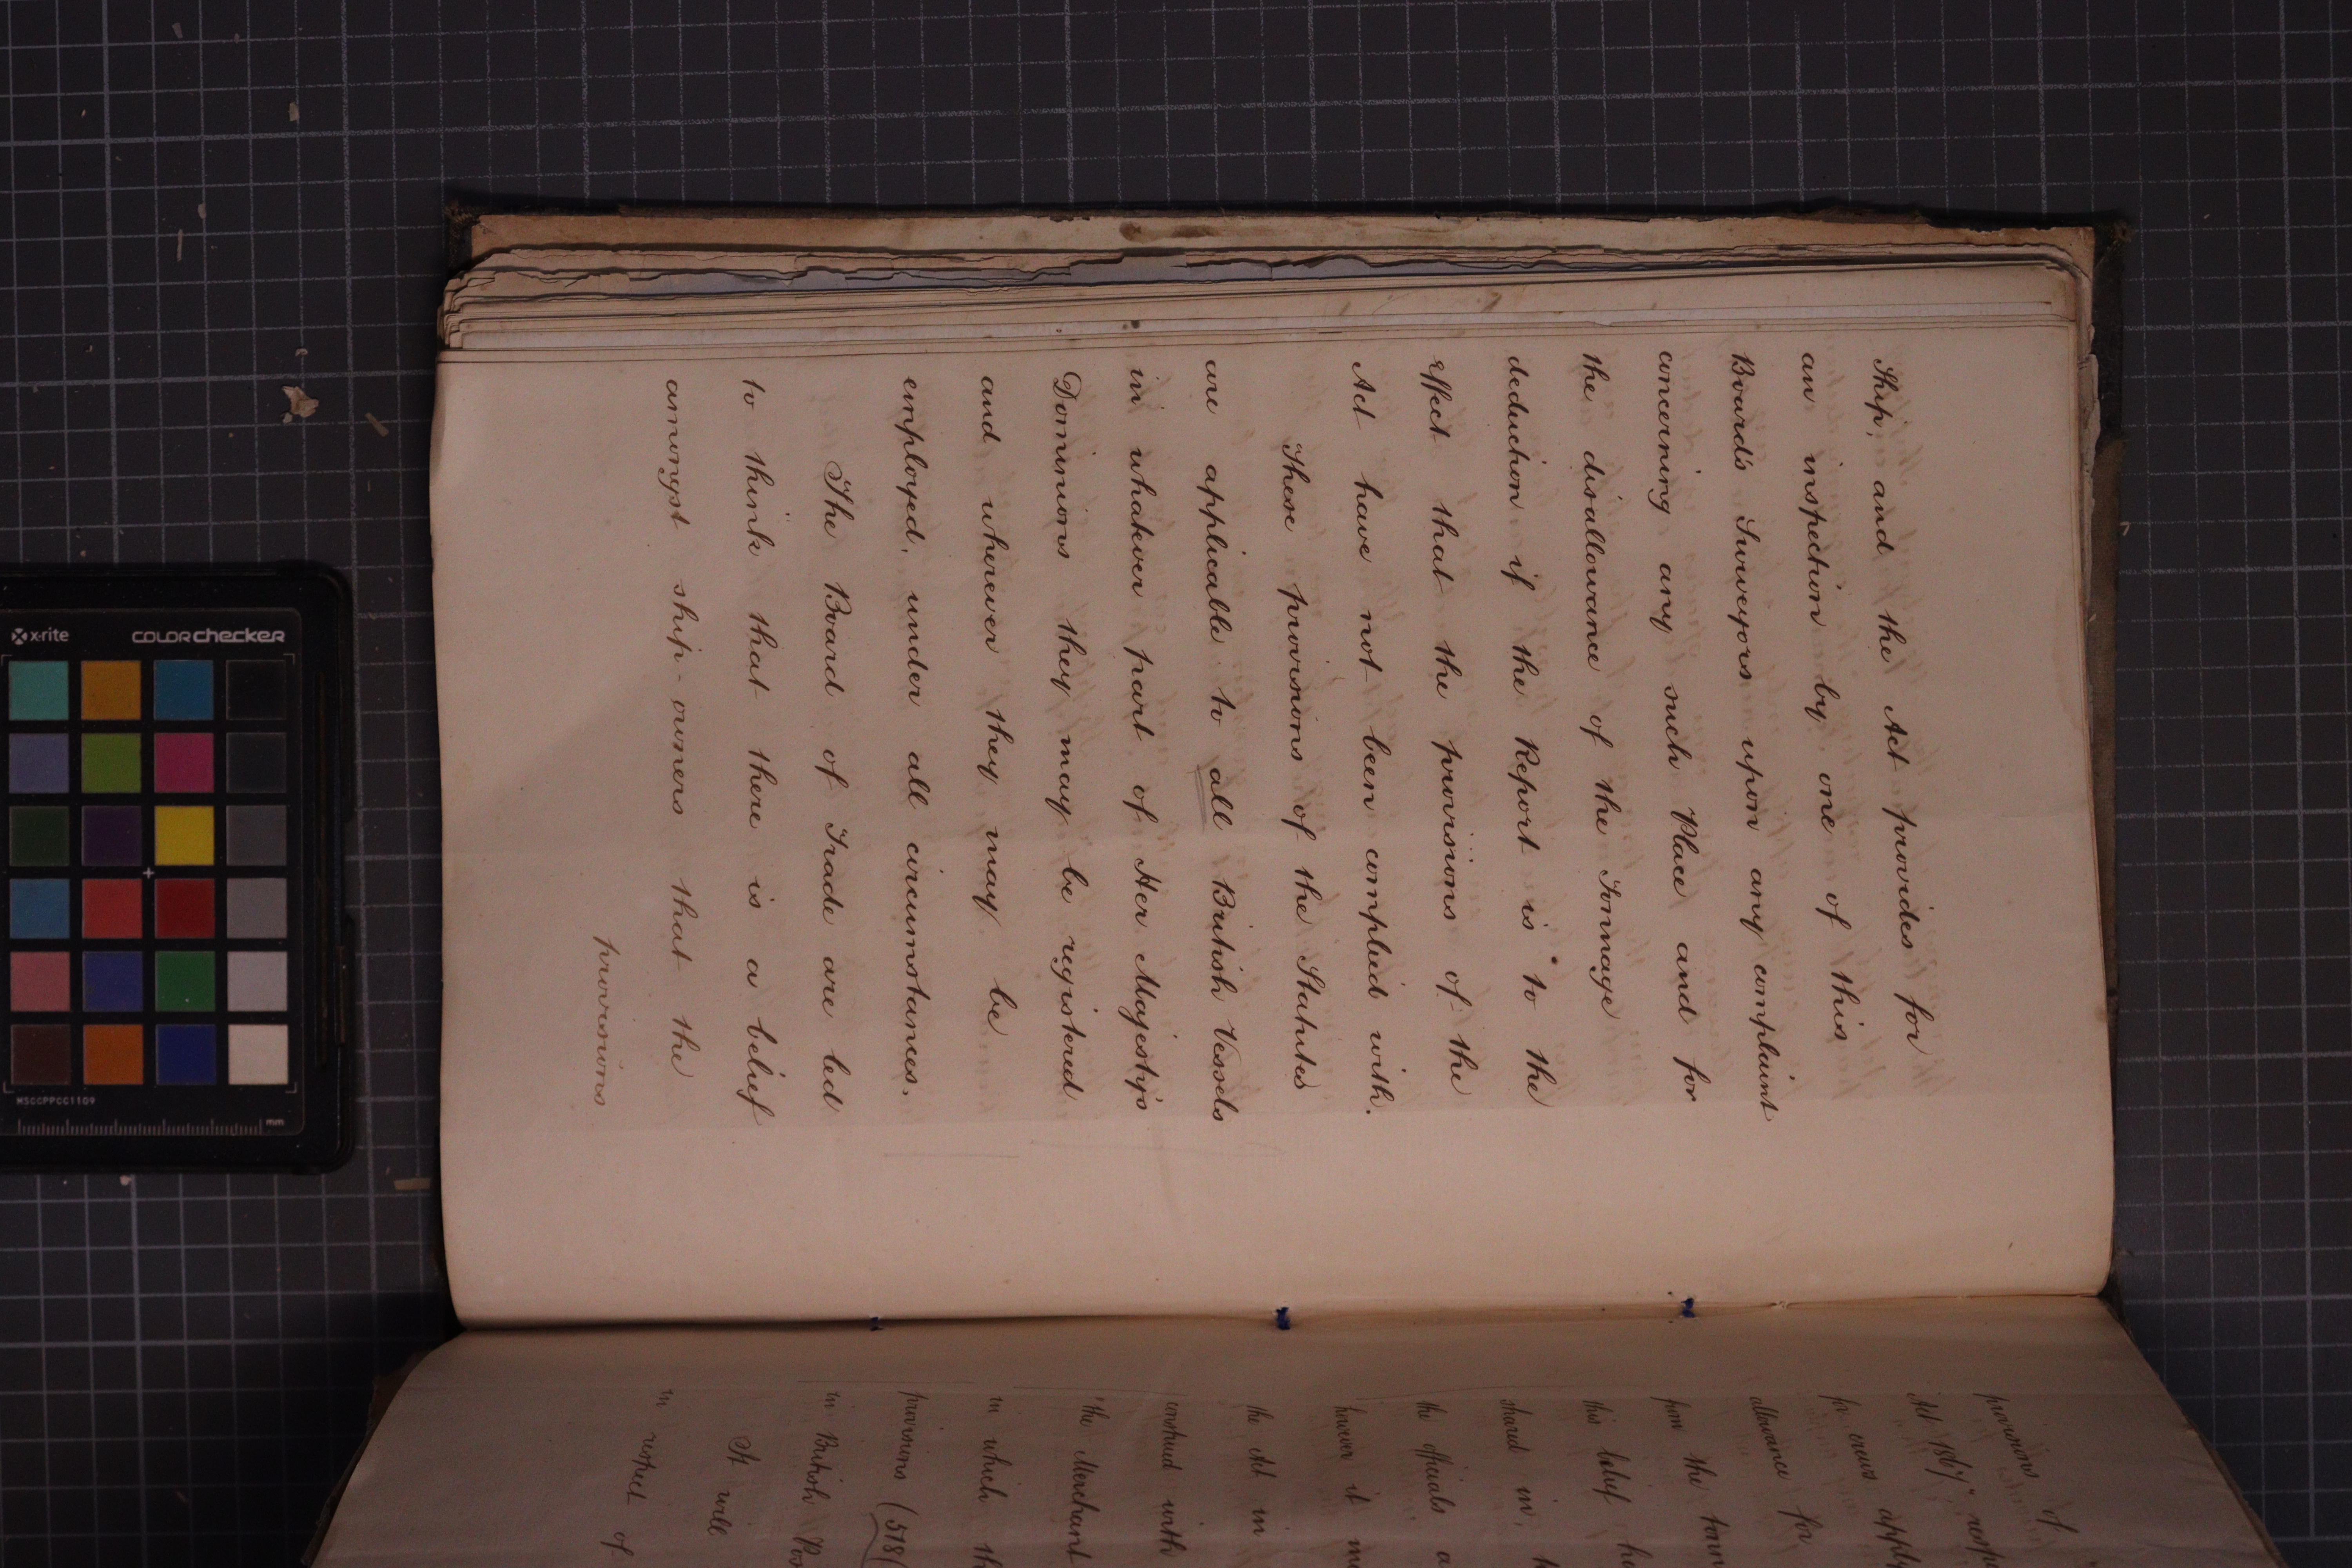 Ship, and the Act provides for
an inspection by one of this
Board's Surveyors upon any complaint
concerning any such Place and for
the disallowance of the Tonnage
deduction if the Report is to the
effect that the provisions of the
Act have not been complied with.
These provisions of the Statutes
are applicable to all British Vessels
in whatever part of Her Majesty's
Dominions they may be registered
and wherever they may be
employed, under all circumstances.
The Board of Trade are led
to think that there is a belief
amongst ship-owners that the
provisions
provisions of
Act 1867
for crews apply
allowance for
from the
this belief
shared in,
the officials
however it
the Act in
construed with
the Merchant
in which
provisions (518
in British
It will
in respect of
x-rite
COLORchecker
MSCCPPCC1109
mm